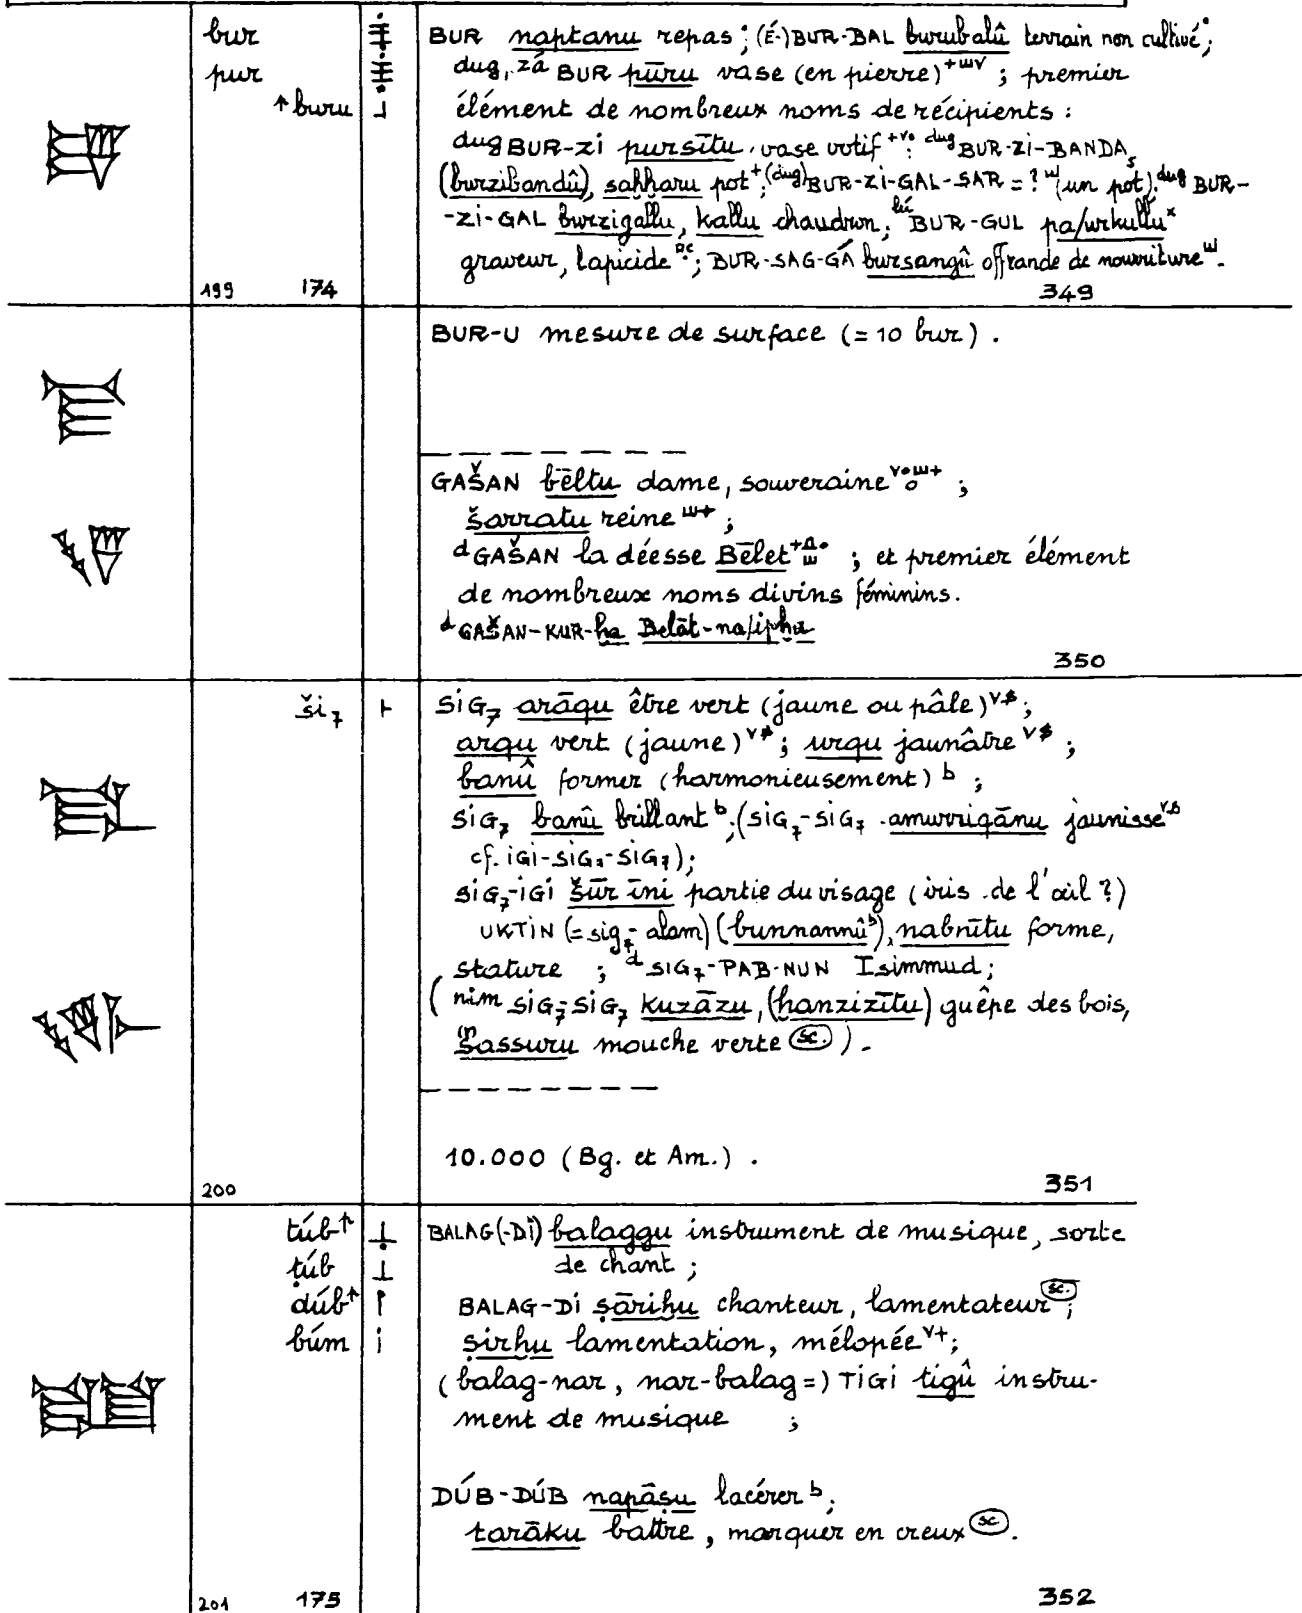 bur BUR naptanu repas ; (É-)BUR-BAL burubalû terrain non cultivé ;
pur dug, zá BUR pūru vase (en pierre) ; premier
↑ buru élément de nombreux noms de récipients :
dug BUR-zi pursītu vase votif ; dug BUR-zi-BANDA₅
(burzibandû), saḫḫaru pot ; (dug) BUR-zi-GAL-SAR = ? (un pot). dug BUR-
-zi-GAL burzigallu, kallu chaudron ; lú BUR-GUL pa/urkullu
graveur, lapicide ; BUR-SAG-GÁ bursangû offrande de nourriture.
199 174 349
BUR-U mesure de surface (= 10 bur).
GAŠAN bēltu dame, souveraine ;
šarratu reine ;
d GAŠAN la déesse Bēlet ; et premier élément
de nombreux noms divins féminins.
d GAŠAN-KUR-ḫa Belāt-na/ipḫa
350
ši₇ SIG₇ arāqu être vert (jaune ou pâle) ;
arqu vert (jaune) ; urqu jaunâtre ;
banû former (harmonieusement) b ;
SIG₇ banû brillant b ; (SIG₇-SIG₇ amurriqānu jaunisse
cf. IGI-SIG₇-SIG₇) ;
SIG₇-IGI šūr īni partie du visage (iris de l'œil ?)
UKTIN (= sig₇-alam) (bunnannû b), nabnītu forme,
stature ; d SIG₇-PAB-NUN Isimmud ;
( nim SIG₇-SIG₇ kuzāzu, (ḫanzizītu) guêpe des bois,
šassuru mouche verte (sc.) ).
10.000 (Bg. et Am.).
200 351
túb↑ BALAG(-DI) balaggu instrument de musique, sorte
ṭúb de chant ;
dúb↑ BALAG-DI ṣāriḫu chanteur, lamentateur (sc.) ;
búm ṣirḫu lamentation, mélopée v+ ;
(balag-nar, nar-balag =) TIGI tigû instru-
ment de musique ;
DÚB-DÚB napāṣu lacérer b ;
tarāku battre, marquer en creux (sc).
201 175 352